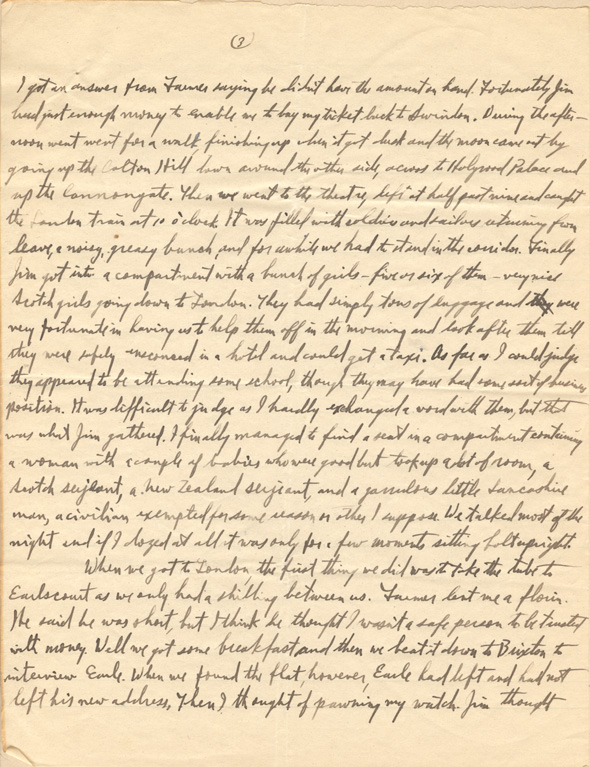 (3)
I got an answer from Farmer saying he didn't have the amount on hand. Fortunately Jim
had just enough money to enable me to buy my ticket back to Swindon. During the after-
noon went went for a walk finishing up when it got dusk and the moon came out by
going up the Calton Hill down around the other side, across to Holyrood Palace and
up the Cannongate. Then we went to the theatre, left at half past nine and caught
the London train at 10 o'clock. It was filled with soldiers and sailors returning from
leave, a noisy, greasy bunch, and for awhile we had to stand in the corridor. Finally
Jim got into a compartment with a bunch of girls - five or six of them - very nice
Scotch girls going down to London. They had simply tons of luggage and they were
very fortunate in having us to help them off in the morning and look after them till
they were safely ensconced in a hotel and could get a taxi. As far as I could judge
they appeared to be attending some school, though they may have had some sort of business
position. It was difficult to judge as I hardly exchanged a word with them, but that
was what Jim gathered. I finally managed to find a seat in a compartment containing
a woman with a couple of babies who were good but took up a lot of room, a
Scotch serjeant, a New Zealand serjeant, and a garrulous little Lancashire
man, a civilian exempted for some reason or other I suppose. We talked most of the
night and if I dozed at all it was only for a few moments sitting bolt upright.
When we got to London the first thing we did was to take the tube to
Earlscourt as we only had a shilling between us. Farmer lent me a florin.
He said he was short, but I think he thought I wasn't a safe person to be trusted
with money. Well we got some breakfast and then we beat it down to Brixton to
interview Earle. When we found the flat, however, Earle had left and had not
left his new address, Then I thought of pawning my watch. Jim thought